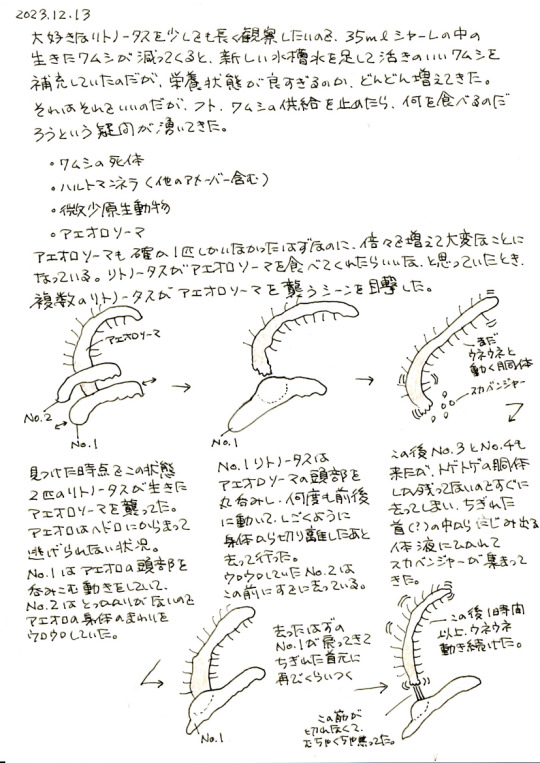 2023.12.13
大好きなリトノータスを少しでも長く観察したいので、35mlシャーレの中の
生きたワムシが減ってくると、新しい水槽水を足して活きのいいワムシを
補充していたのだが、栄養状態が良すぎるのか、どんどん増えてきた。
それはそれでいいのだが、フト、ワムシの供給を止めたら、何を食べるのだ
ろうという疑問が湧いてきた。
・ワムシの死体
・ハルトマンネラ(他のアメーバー含む)
・微少原生動物
・アエオロソーマ
アエオロソーマも確か1匹しかいなかったはずなのに、倍々で増えて大変なことに
なっている。リトノータスがアエオロソーマを食べてくれたらいいな、と思っていたとき、
複数のリトノータスがアエオロソーマを襲うシーンを目撃した。
アエオロソーマ
No.2
No.1
No.1
まだ
ウネウネと
動く胴体
スカベンジャー
見つけた時点でこの状態
2匹のリトノータスが生きた
アエオロソーマを襲った。
アエオロはヘドロにからまって
逃げられない状況。
No.1はアエオロの頭部を
呑みこむ動きをしていて、
No.2はとっかかりがないので
アエオロの身体のまわりを
ウロウロしていた。
No.1リトノータスは
アエオロソーマの頭部を
丸呑みし、何度も前後
に動いて、しごくように
身体から切り離したあと
去って行った。
ウロウロしていたNo.2は
この前にすでに去っている。
この後No.3とNo.4も
来たが、トゲトゲの胴体
しか残ってないのですぐに
去ってしまい、ちぎれた
首(?)の中からにじみ出る
体液にひかれて
スカベンジャーが集まって
きた。
No.1
去ったはずの
No.1が戻ってきて
ちぎれた首元に
再びくらいつく
この後1時間
以上、ウネウネ
動き続けた。
この筋が
切れなくて、
むちゃくちゃ焦ってた。